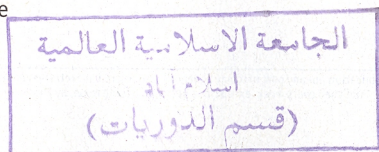 e
الجامعة الاسلامية العالمية
اسلام آباد
(قسم الدوريات)